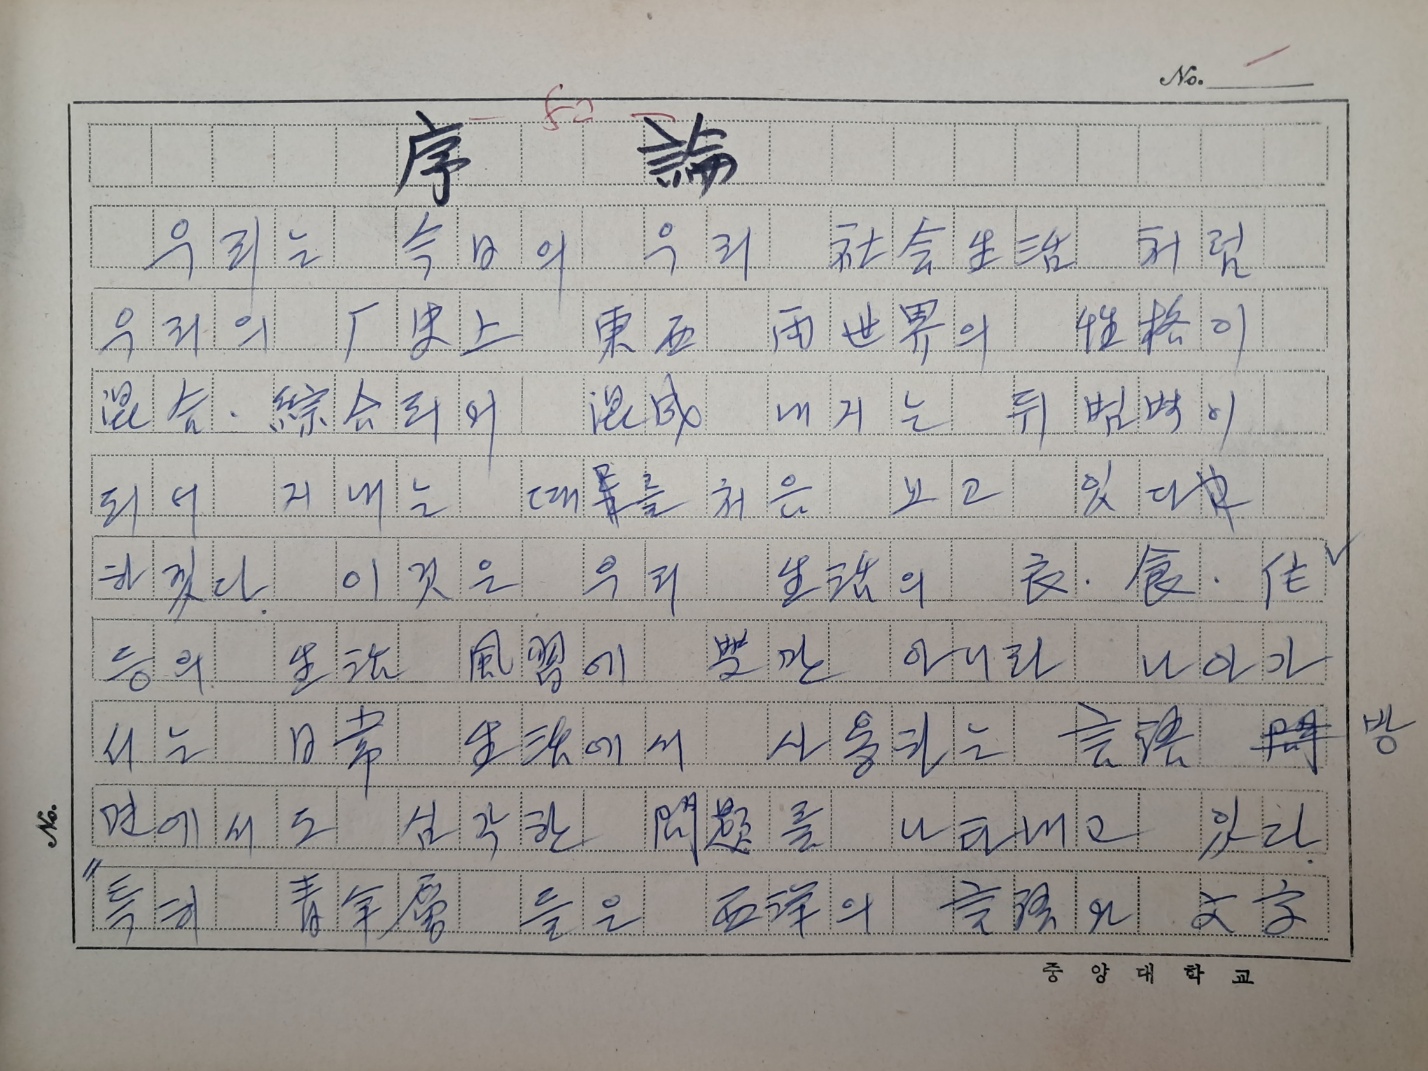 No.
序 論
우리는 今日의 우리 社会生活 처럼
우리의 厂史上 東西 両世界의 性格이
混合·綜合되여 混成 내지는 뒤범벅이
되어 지내는 때를 처음 보고 있다
하겠다. 이것은 우리 生活의 衣·食·住
등의 生活 風習에 뿐만 아니라 나아가
서는 日常 生活에서 사용되는 言語 방
면에서도 심각한 問題를 나타내고 있다.
특히 青年層 들은 西洋의 言語와 文字
No.
중앙대학교